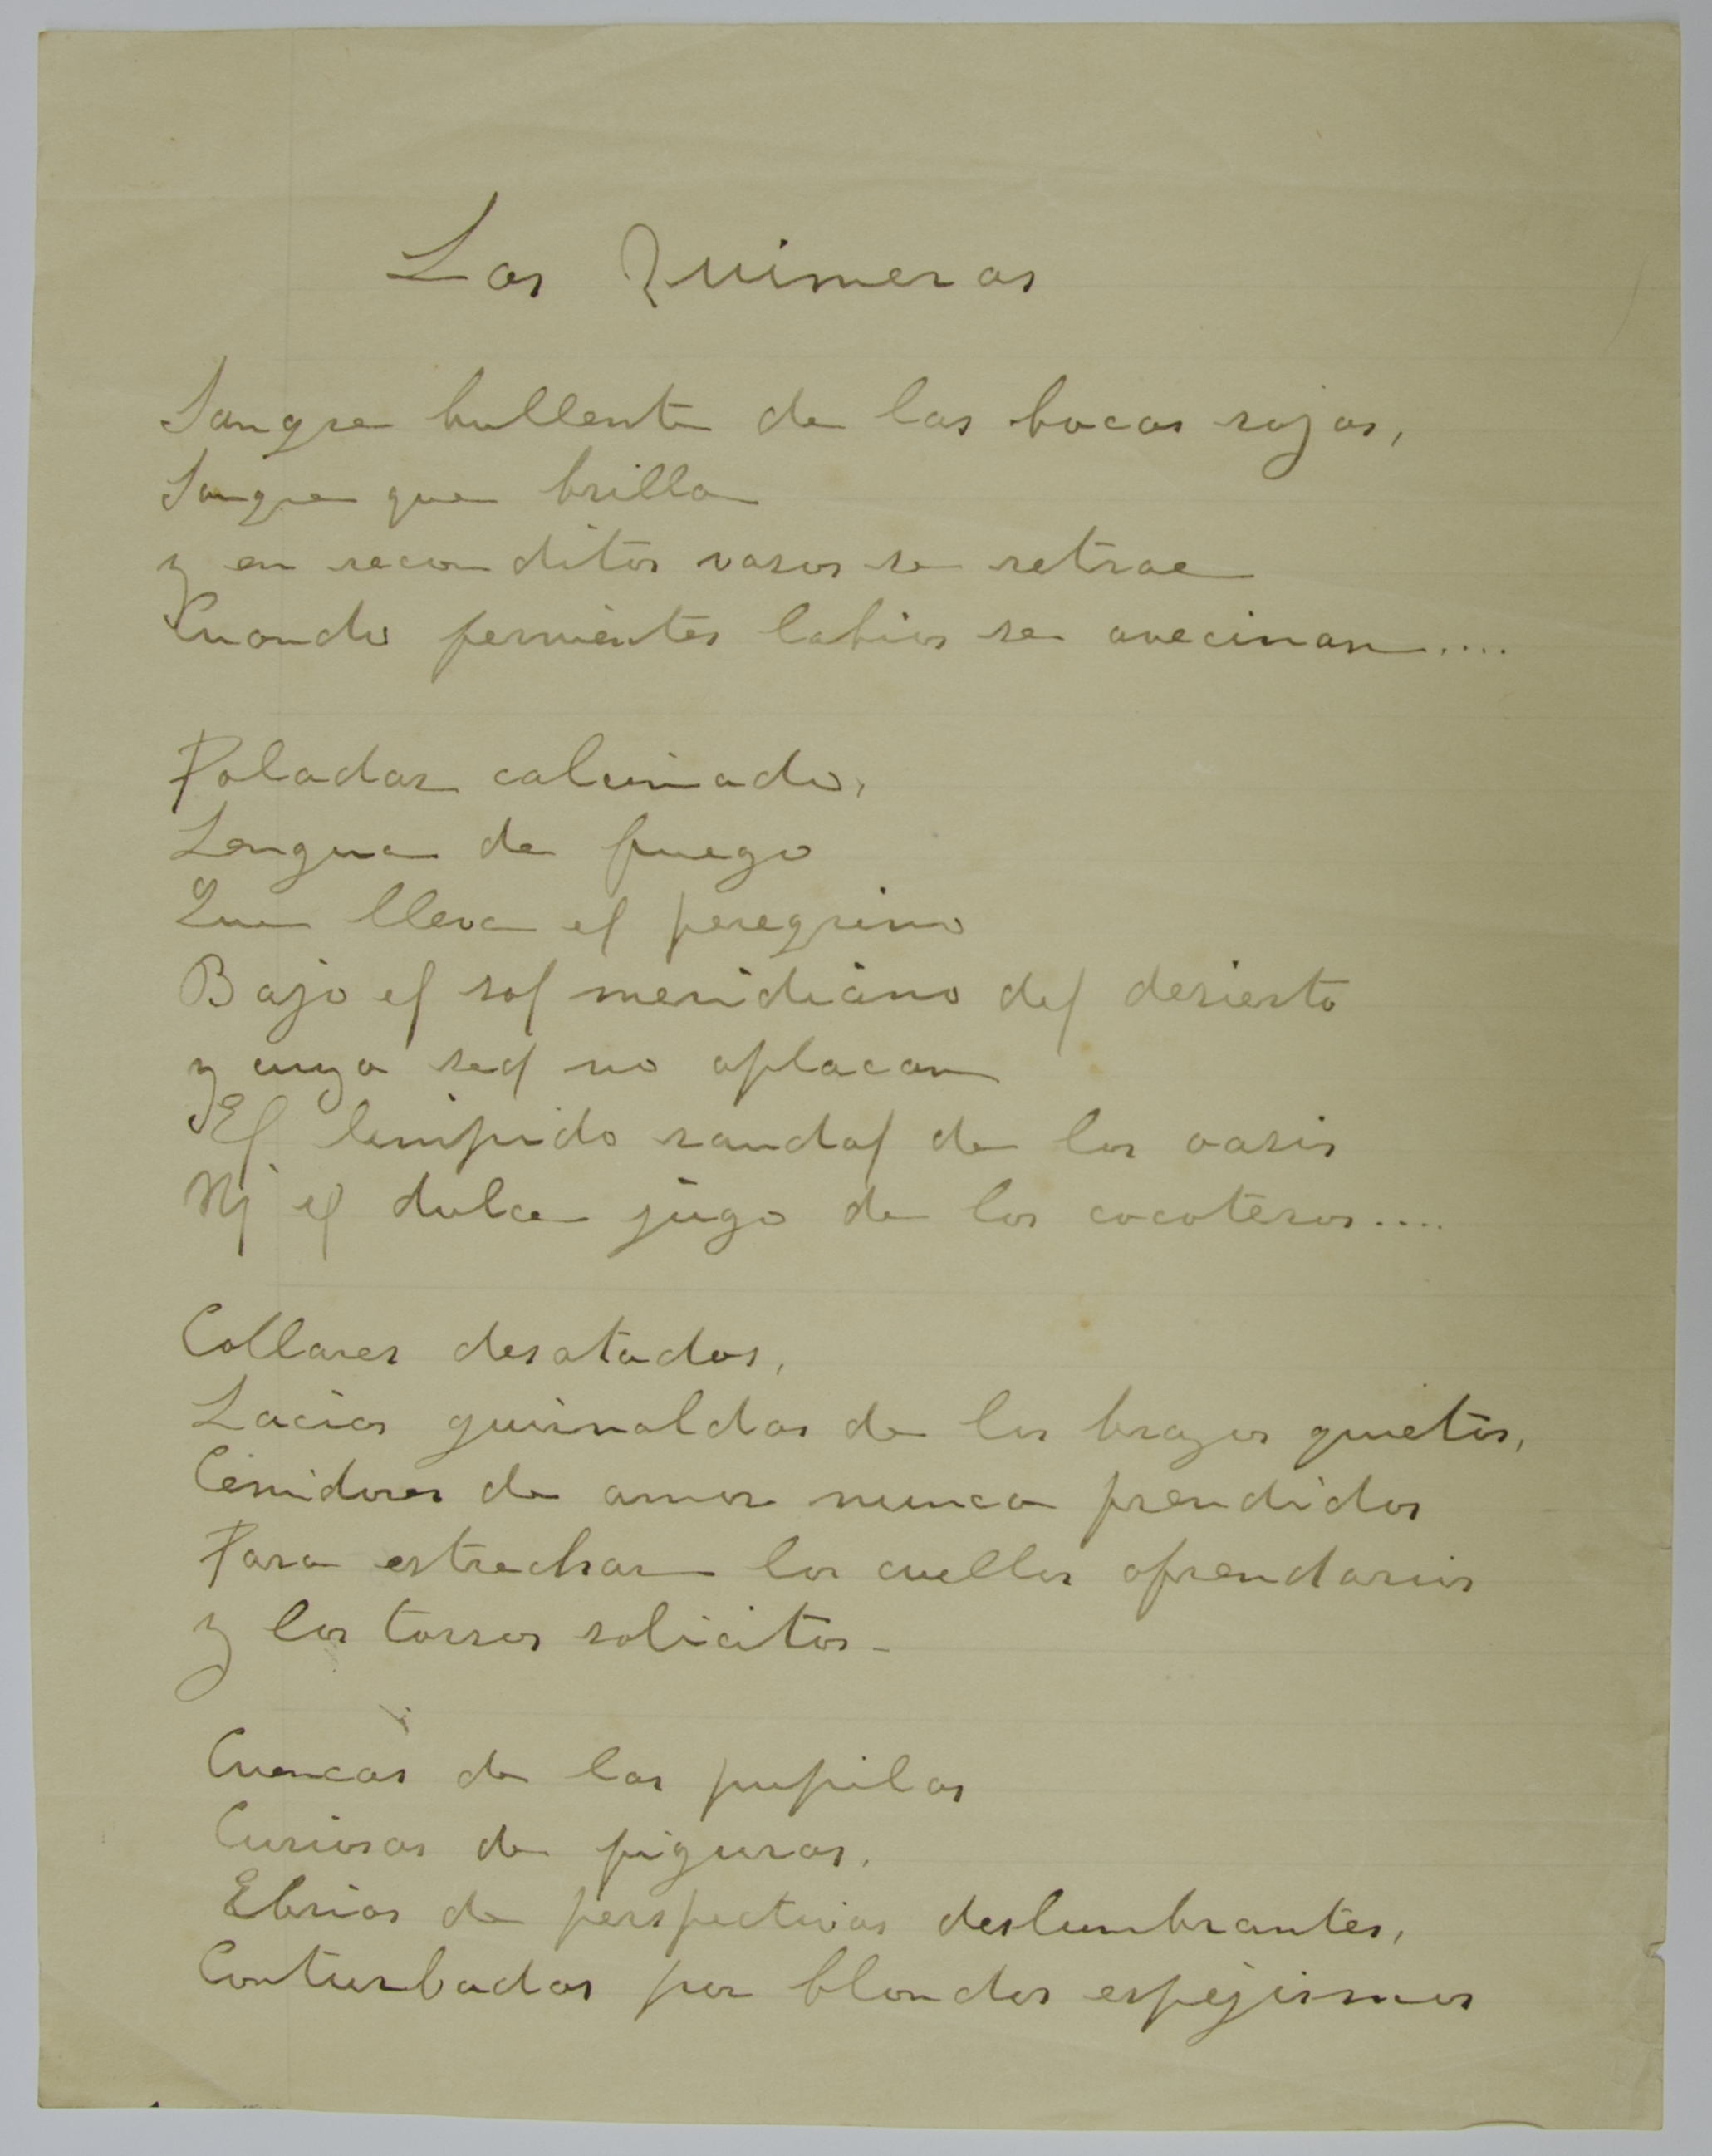 Las Quimeras
Sangre bullente de las bocas rojas,
Sangre que brilla
y en reconditos vasos se retrae
Cuando fervientes labios se avecinan....
Paladar calcinado,
Lengua de fuego
Que lleva el peregrino
Bajo el sol meridiano del desierto
y cuya sed no aplacan
El limpido raudal de los oasis
Ni el dulce jugo de los cocoteros....
Collares desatados,
Lacias guirnaldas de los brazos quietos,
Cenidores de amor nunca prendidos
Para estrechar los cuellos ofrendarios
y los torsos solicitos-
Cuencas de las pupilas
Curiosas de figuras,
Ebrias de perspectivas deslumbrantes,
Conturbadas por blondos espejismos